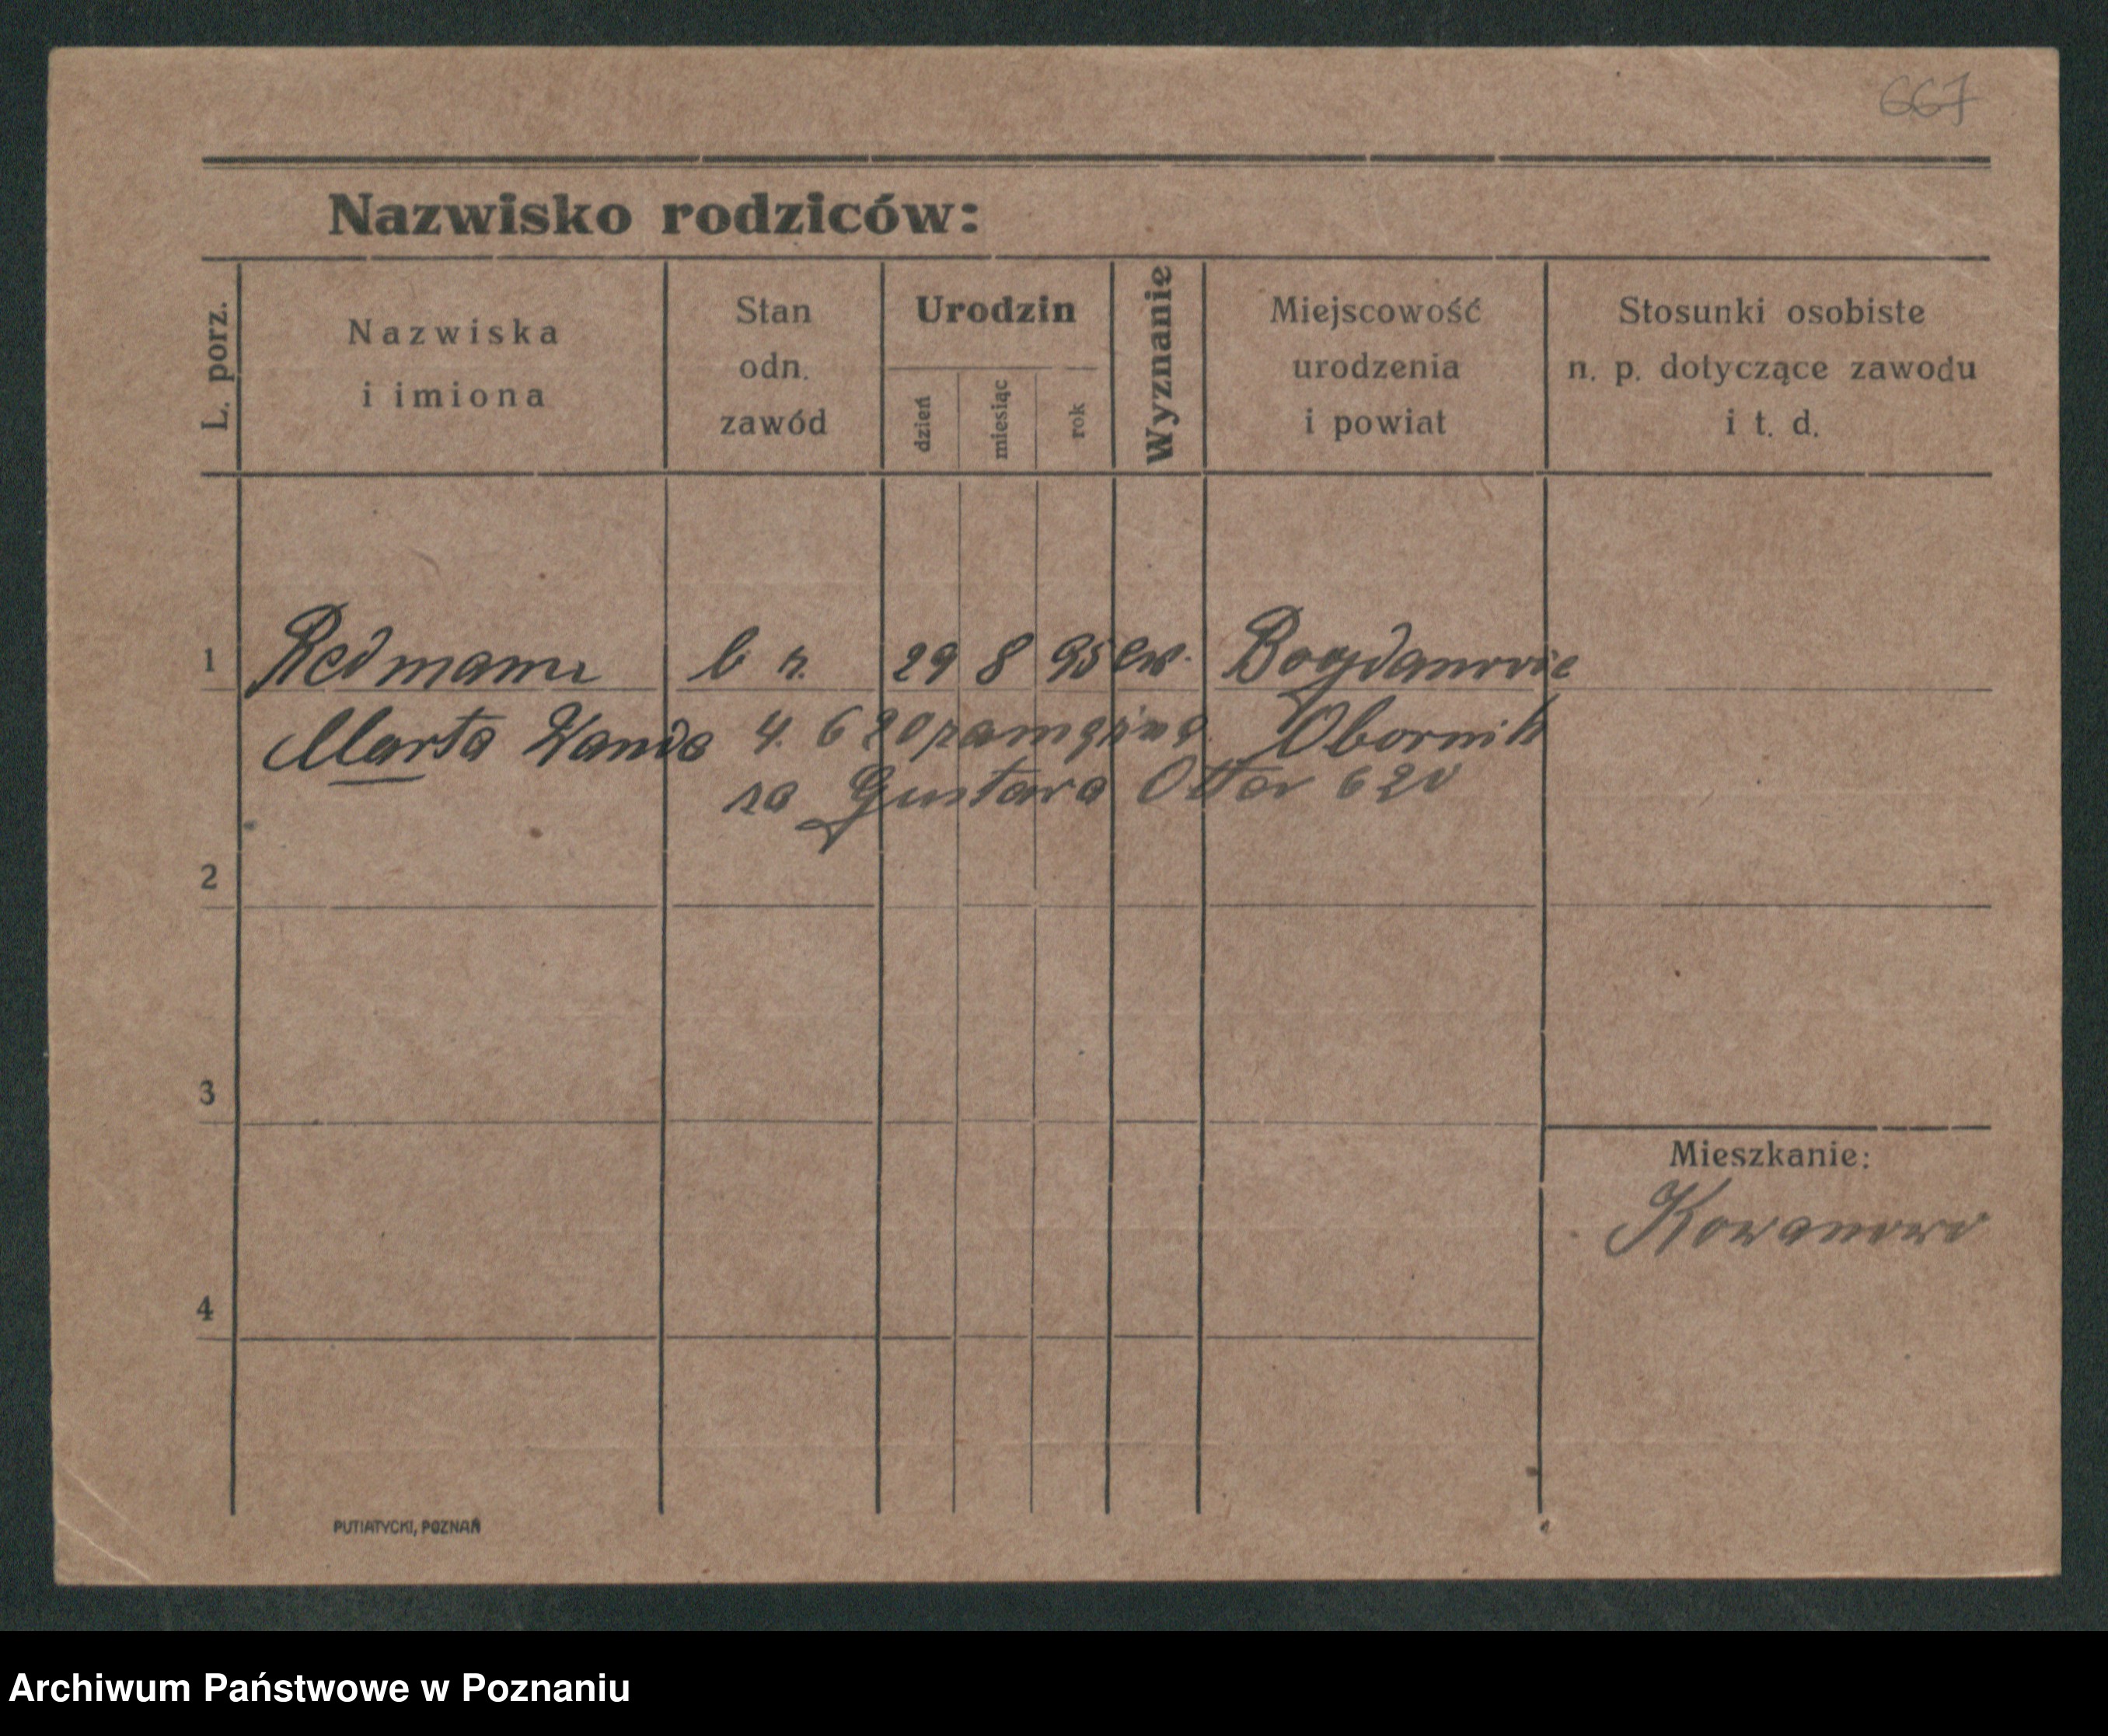 667
Nazwisko rodziców:
L. porz.
Nazwiska
i imiona
Stan
odn.
zawód
Urodzin
dzień
miesiąc
rok
Wyznanie
Miejscowość
urodzenia
i powiat
Stosunki osobiste
n. p. dotyczące zawodu
i t. d.
1 Redmann b. z. 29 8 95 ew. Bogdanowie
Marta Wanda 4. 6 20 zamężna Obornik
za Gustava Otter 620
2
3
Mieszkanie:
Kowanowo
4
PUTIATYCKI, POZNAŃ
Archiwum Państwowe w Poznaniu